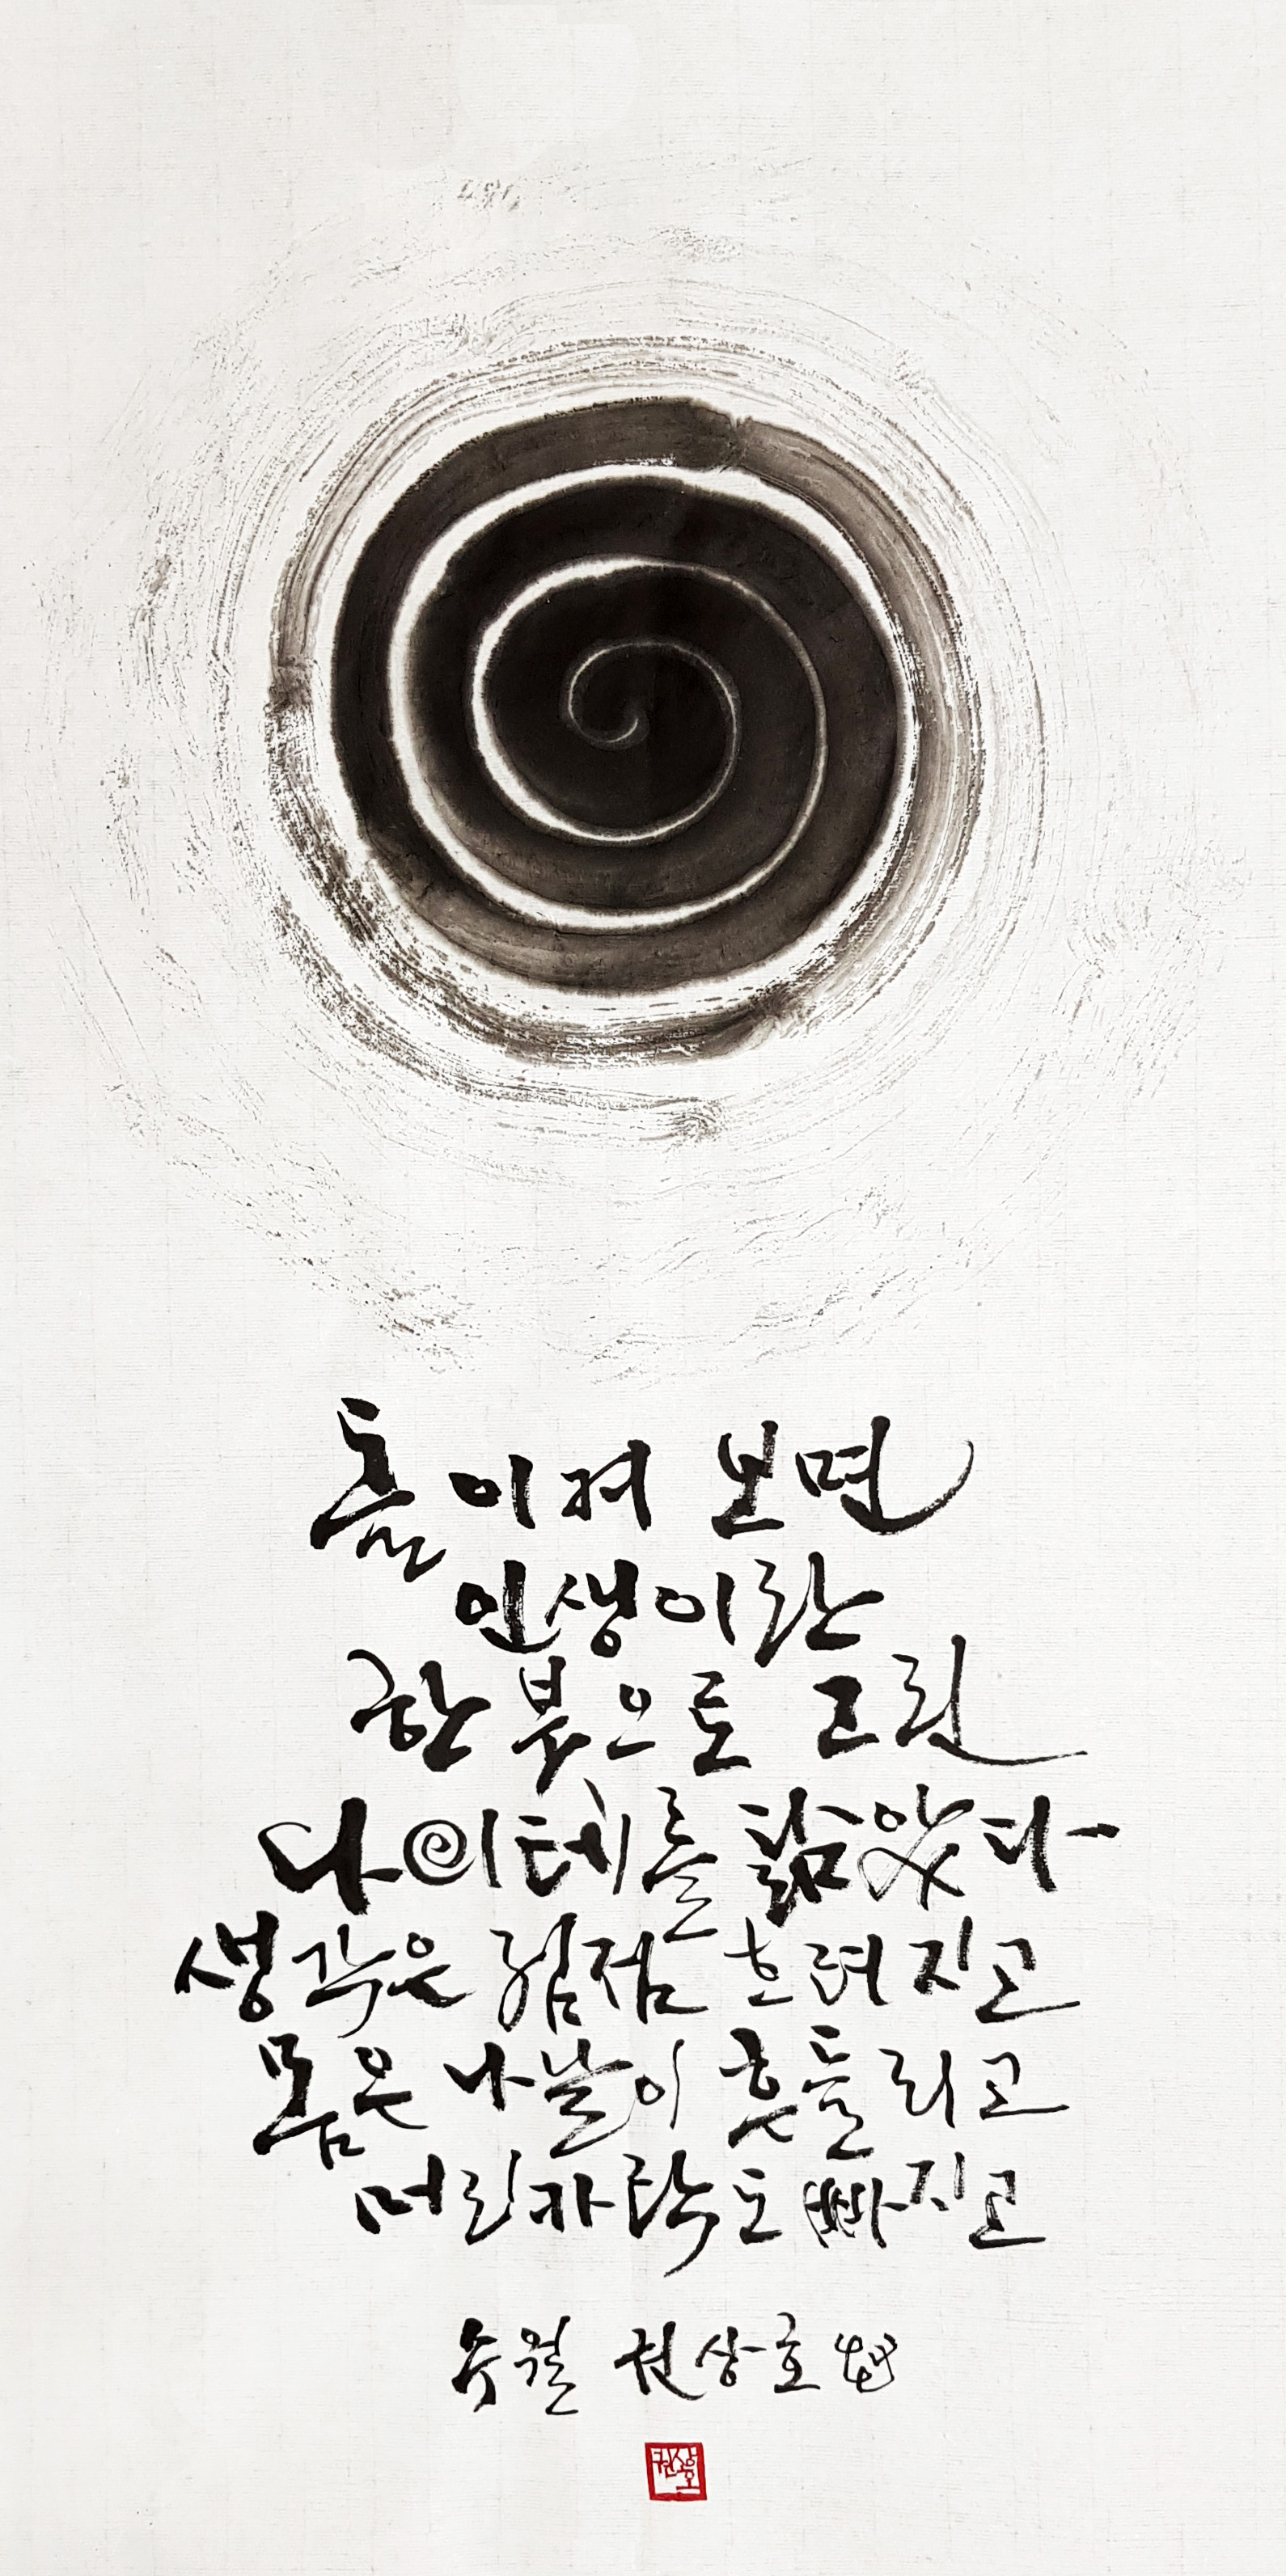 돌이켜 보면
인생이란
한 붓으로 그린
나이테를 닮았다
생각은 점점 흐려지고
몸은 나날이 흔들리고
머리카락도 빠지고
권상호
권상호